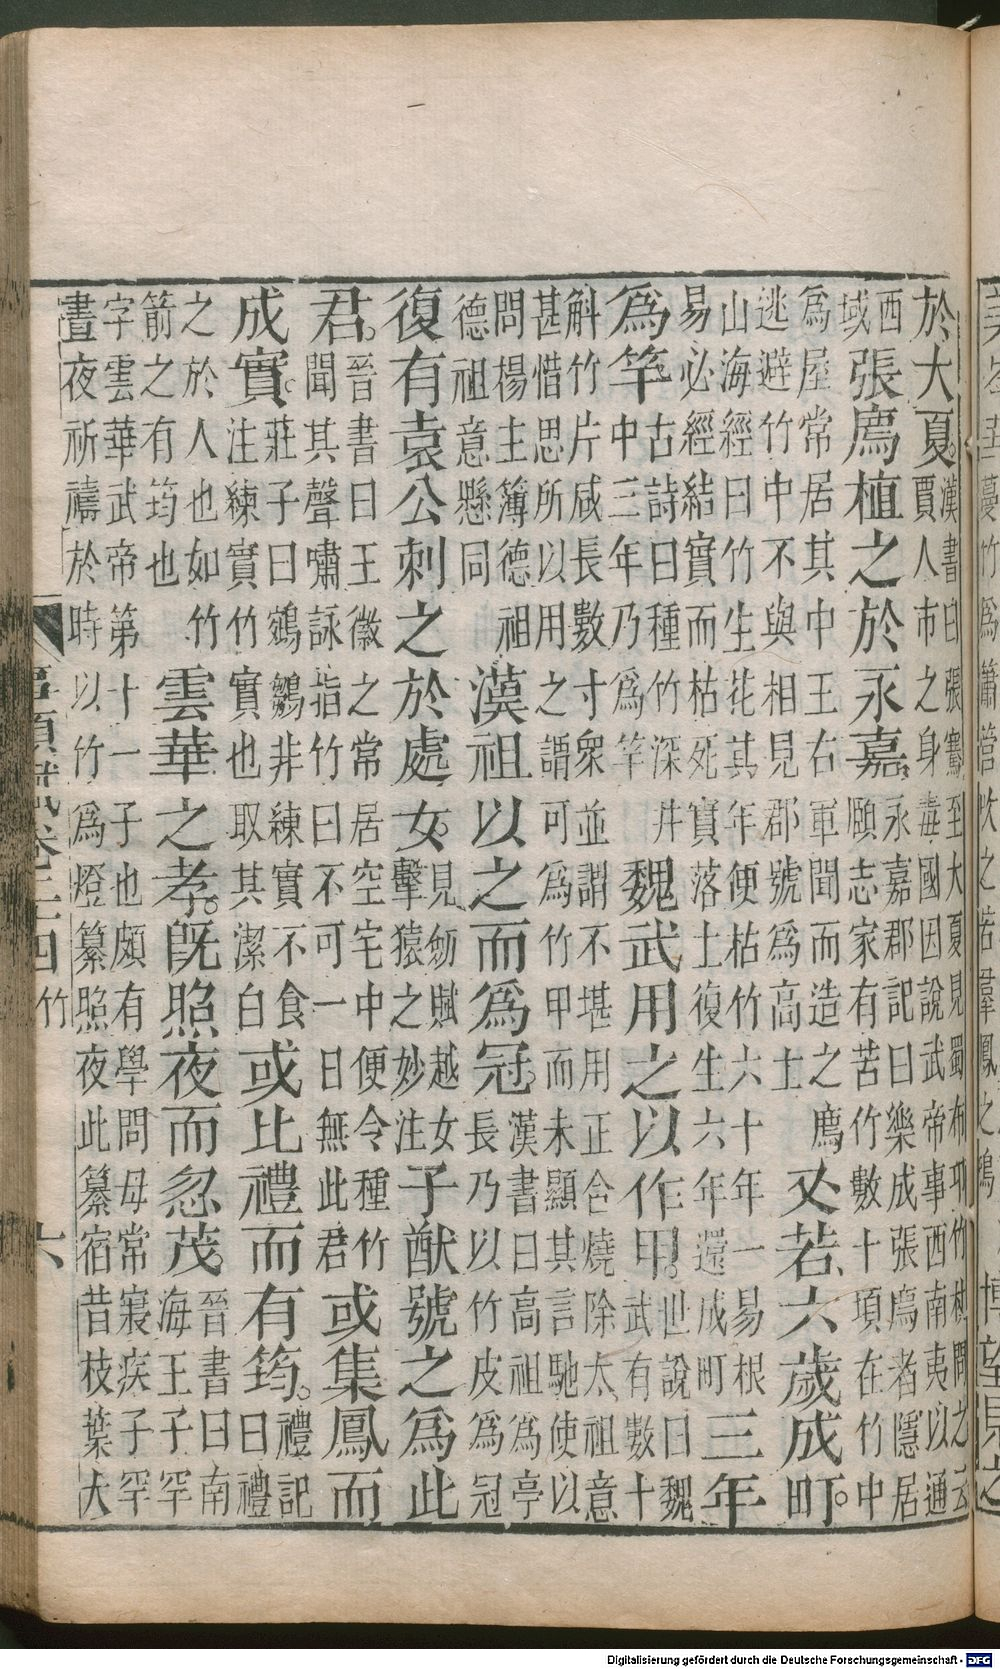 於大夏。漢書曰張騫至大夏見蜀布邛竹杖問之云
賈人市之身毒國因說武帝事西南夷以通
西
域張廌植之於永嘉。永嘉郡記曰樂成張廌者隱居
頤志家有苦竹數十頃在竹中
為屋常居其中王右軍聞而造之廌
逃避竹中不與相見郡號為高士又若六歲成町。
山海經曰竹生花其年便枯竹六十年一易根
易必經結實而枯死實落土復生六年還成町三年
為竿。古詩曰種竹深井
中三年乃為竿魏武用之以作甲。世說曰魏
武有數十
斛竹片咸長數寸衆並謂不堪用正合燒除太祖意
甚惜思所以用之謂可為竹甲而未顯其言馳使以
問楊主簿德祖
德祖意懸同漢祖以之而為冠。漢書曰高祖為亭
長乃以竹皮為冠
復有袁公刺之於處女。見劒賦越女
擊猿之妙注子猷號之為此
君。晉書曰王徽之常居空宅中便令種竹
聞其聲嘯詠指竹曰不可一日無此君或集鳳而
成實。莊子曰鵷鶵非練實不食
注練實竹實也取其潔白或比禮而有筠。禮記
曰禮
之於人也如竹
箭之有筠也雲華之孝。既照夜而忽茂。晉書曰南
海王子罕
字雲華武帝第十一子也頗有學問母常寢疾子罕
晝夜祈禱於時以竹為燈纂照夜此纂宿昔枝葉大
事類賦卷二十四 竹 六
Digitalisierung gefördert durch die Deutsche Forschungsgemeinschaft - DFG